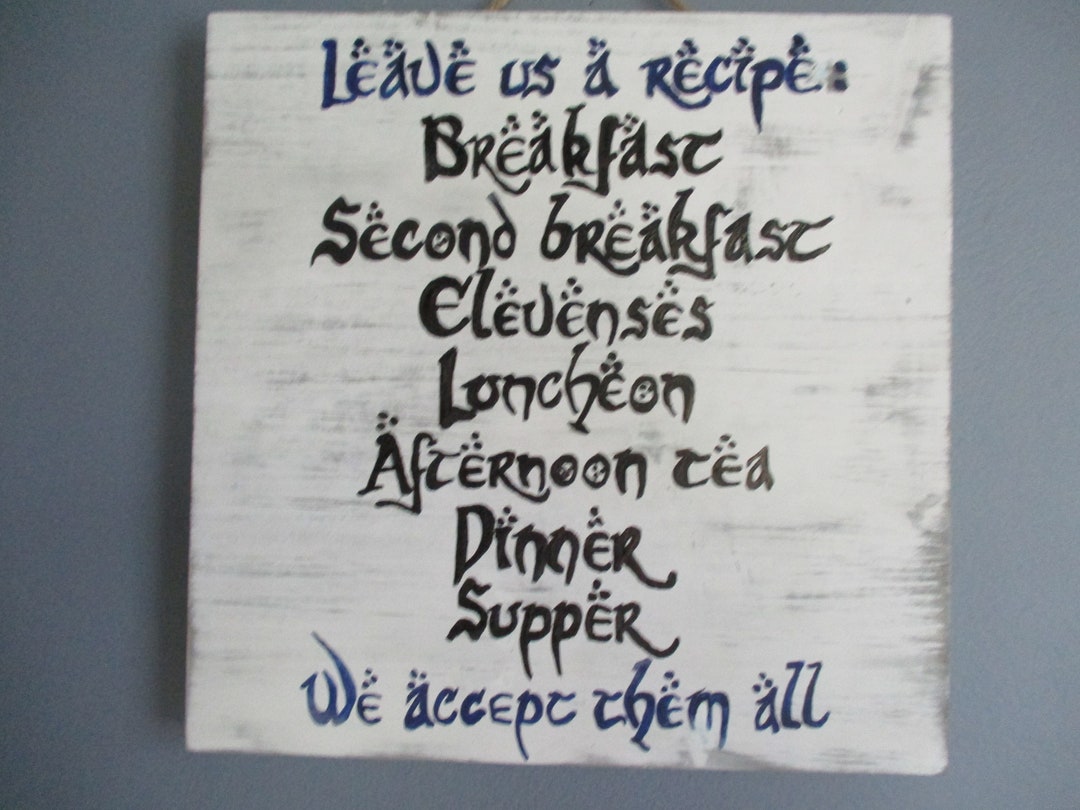 Leave us a recipe:
Breakfast
Second breakfast
Elevenses
Luncheon
Afternoon tea
Dinner
Supper
We accept them all